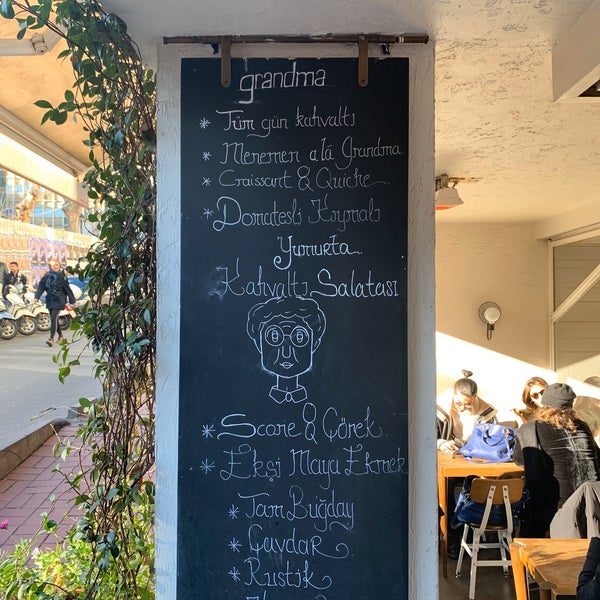 grandma
* Tüm gün kahvaltı
* Menemen a lá Grandma
* Craissant & Quiche
* Domatesli Kıymalı
Yumurta
Kahvaltı Salatası
* Scone & Çörek
* Ekşi Maya Ekmek
* Tam Buğday
* Çavdar
* Rustik